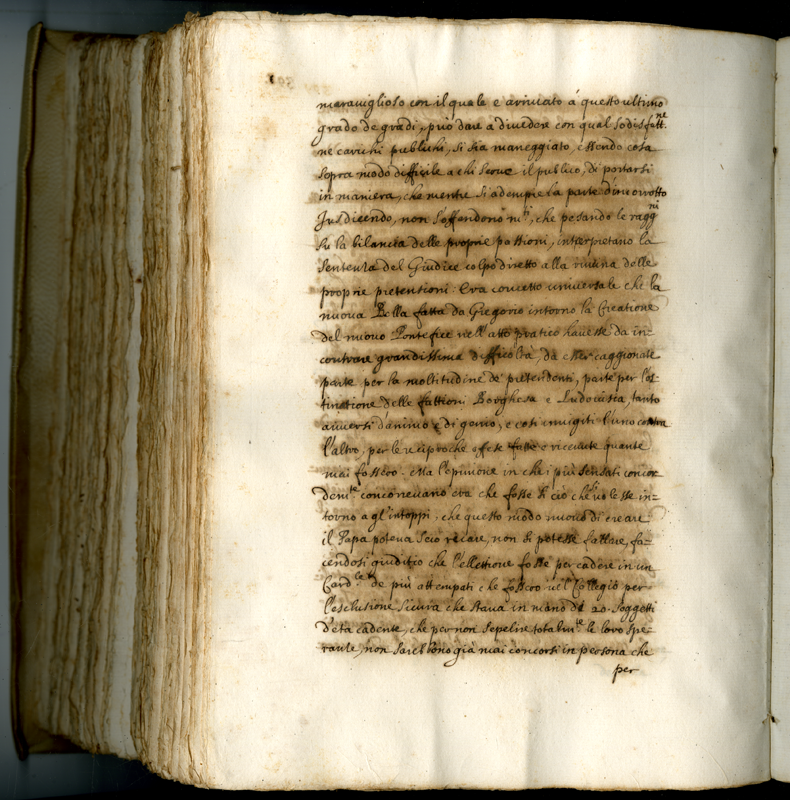 maraviglioso con il quale è arrivato á questo ultimo
grado de gradi, può dare a divedere con qual sodisfatt.ne
ne carichi publichi, si sia maneggiato, essendo cosa
sopra modo difficile a chi serve il publico, di portarsi
in maniera, che mentre si adempie la parte d'incorrotto
Jusdicendo, non s'offendono m.ti, che pesando le ragg.ni
su la bilancia delle proprie passioni, interpretano la
sentenza del Giudice colpo diretto alla ruuina delle
proprie pretentioni: Era concetto universale che la
nuova Bolla fatta da Gregorio intorno la Creatione
del nuovo Pontefice nell'atto pratico havesse da in=
contrare grandissima difficoltà, da esser caggionate
parte per la moltitudine de pretendenti, parte per l'os=
tinatione delle fattioni Borghesa e Ludovisia, tanto
auuersi d'animo e di genio, e così inuigiti l'uno contra
l'altro, per le reciproche offese fatte e riceuute quante
mai fossero. Ma l'opinione in che i più sensati concor
dem.te concorreuano era che fosse di ciò che si uolesse in=
torno a gl'intoppi, che questo modo nuouo di creare
il Papa poteua seco recare, non si potesse fallare, fa=
cendosi giuditio che l'elettione fosse per cadere in un
Card.le de più attempati che fossero nel Collegio per
l'esclusione sicura che staua in mano di 20. soggetti
d'età cadente, che per non sepelire totalm.te le loro spe=
ranze, non sarebbono già mai concorsi in persona che
per